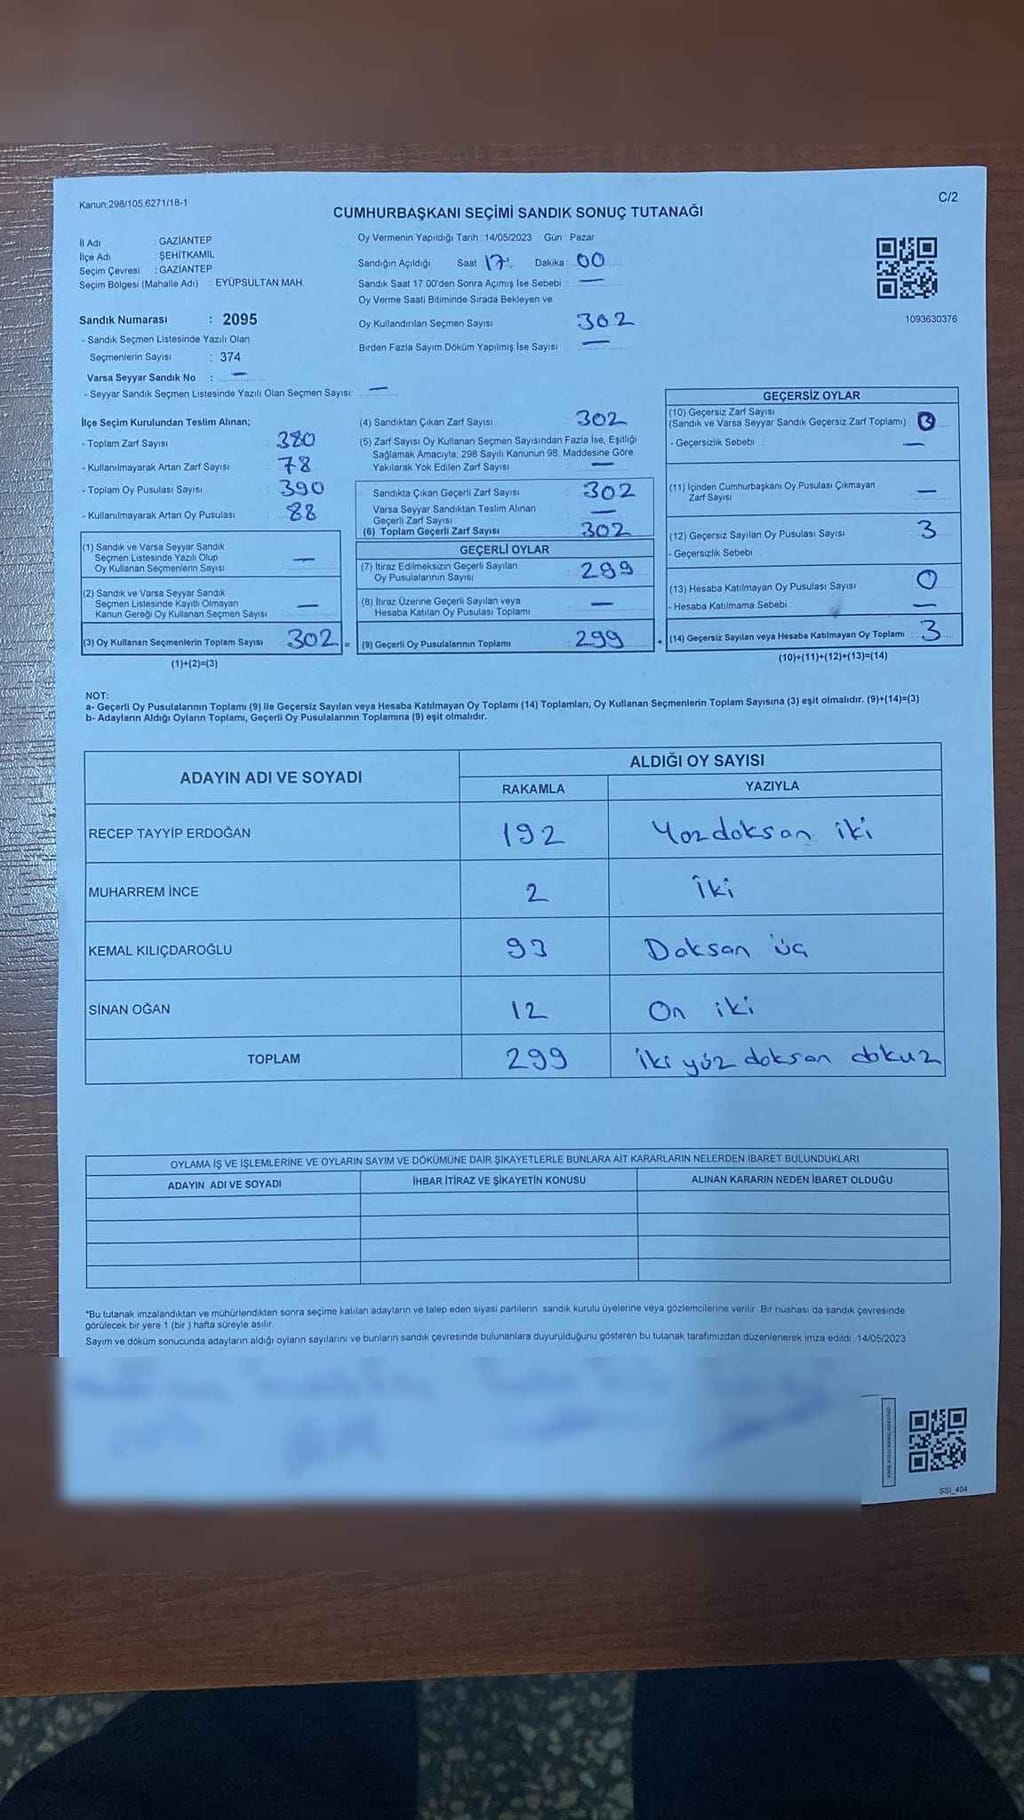 Kanun;298/105,6271/18-1
C/2
CUMHURBAŞKANI SEÇİMİ SANDIK SONUÇ TUTANAĞI
İl Adı : GAZİANTEP
İlçe Adı : ŞEHİTKAMİL
Seçim Çevresi : GAZİANTEP
Seçim Bölgesi (Mahalle Adı) : EYÜPSULTAN MAH.
Sandık Numarası : 2095
- Sandık Seçmen Listesinde Yazılı Olan
Seçmenlerin Sayısı : 374
Varsa Seyyar Sandık No : —
- Seyyar Sandık Seçmen Listesinde Yazılı Olan Seçmen Sayısı: —
Oy Vermenin Yapıldığı Tarih :14/05/2023 Gün : Pazar
Sandığın Açıldığı Saat 17 Dakika : 00
Sandık Saat 17.00'den Sonra Açımış İse Sebebi : —
Oy Verme Saati Bitiminde Sırada Bekleyen ve
Oy Kullandırılan Seçmen Sayısı 302
Birden Fazla Sayım Döküm Yapılmış İse Sayısı —
1093630376
İlçe Seçim Kurulundan Teslim Alınan;
- Toplam Zarf Sayısı 380
- Kullanılmayarak Artan Zarf Sayısı 78
- Toplam Oy Pusulası Sayısı 390
- Kullanılmayarak Artan Oy Pusulası 88
(1) Sandık ve Varsa Seyyar Sandık
Seçmen Listesinde Yazılı Olup
Oy Kullanan Seçmenlerin Sayısı —
(2) Sandık ve Varsa Seyyar Sandık
Seçmen Listesinde Kayıtlı Olmayan
Kanun Gereği Oy Kullanan Seçmen Sayısı —
(3) Oy Kullanan Seçmenlerin Toplam Sayısı 302 =
(1)+(2)=(3)
(4) Sandıktan Çıkan Zarf Sayısı 302
(5) Zarf Sayısı Oy Kullanan Seçmen Sayısından Fazla İse, Eşitliği
Sağlamak Amacıyla, 298 Sayılı Kanunun 98. Maddesine Göre
Yakılarak Yok Edilen Zarf Sayısı —
Sandıkta Çıkan Geçerli Zarf Sayısı 302
Varsa Seyyar Sandıktan Teslim Alınan
Geçerli Zarf Sayısı —
(6) Toplam Geçerli Zarf Sayısı 302
GEÇERLİ OYLAR
(7) İtiraz Edilmeksizin Geçerli Sayılan
Oy Pusulalarının Sayısı 299
(8) İtiraz Üzerine Geçerli Sayılan veya
Hesaba Katılan Oy Pusulası Toplamı —
(9) Geçerli Oy Pusulalarının Toplamı 299 +
GEÇERSİZ OYLAR
(10) Geçersiz Zarf Sayısı
(Sandık ve Varsa Seyyar Sandık Geçersiz Zarf Toplamı)
- Geçersizlik Sebebi —
(11) İçinden Cumhurbaşkanı Oy Pusulası Çıkmayan
Zarf Sayısı —
(12) Geçersiz Sayılan Oy Pusulası Sayısı 3
- Geçersizlik Sebebi
(13) Hesaba Katılmayan Oy Pusulası Sayısı 0
- Hesaba Katılmama Sebebi —
(14) Geçersiz Sayılan veya Hesaba Katılmayan Oy Toplamı 3
(10)+(11)+(12)+(13)=(14)
NOT:
a- Geçerli Oy Pusulalarının Toplamı (9) ile Geçersiz Sayılan veya Hesaba Katılmayan Oy Toplamı (14) Toplamları, Oy Kullanan Seçmenlerin Toplam Sayısına (3) eşit olmalıdır. (9)+(14)=(3)
b- Adayların Aldığı Oyların Toplamı, Geçerli Oy Pusulalarının Toplamına (9) eşit olmalıdır.
ADAYIN ADI VE SOYADI ALDIĞI OY SAYISI
RAKAMLA YAZIYLA
RECEP TAYYİP ERDOĞAN 192 Yozdoksan iki
MUHARREM İNCE 2 İki
KEMAL KILIÇDAROĞLU 93 Doksan üç
SİNAN OĞAN 12 On iki
TOPLAM 299 İki yüz doksan dokuz
OYLAMA İŞ VE İŞLEMLERİNE VE OYLARIN SAYIM VE DÖKÜMÜNE DAİR ŞİKAYETLERLE BUNLARA AİT KARARLARIN NELERDEN İBARET BULUNDUKLARI
ADAYIN ADI VE SOYADI İHBAR İTİRAZ VE ŞİKAYETİN KONUSU ALINAN KARARIN NEDEN İBARET OLDUĞU
*Bu tutanak imzalandıktan ve mühürlendikten sonra seçime katılan adayların ve talep eden siyasi partilerin sandık kurulu üyelerine veya gözlemcilerine verilir. Bir nüshası da sandık çevresinde
görülecek bir yere 1 (bir ) hafta süreyle asılır.
Sayım ve döküm sonucunda adayların aldığı oyların sayılarını ve bunların sandık çevresinde bulunanlara duyurulduğunu gösteren bu tutanak tarafımızdan düzenlenerek imza edildi. 14/05/2023
SSI_404